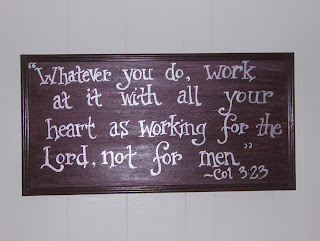 "Whatever you do, work
at it with all your
heart as working for the
Lord, not for men"
~Col 3:23